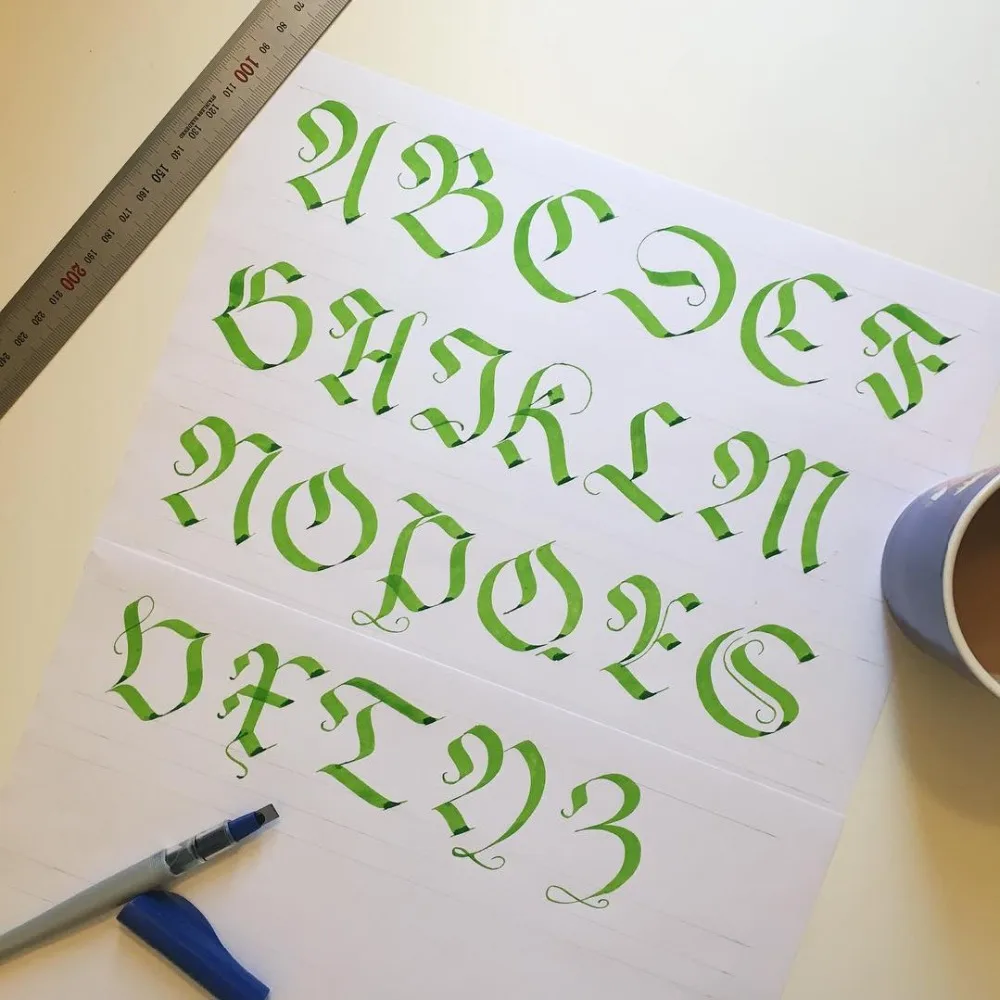 A B C D E F
G H I K L M
N O P Q R S
V X T Y Z
70 80 90 100 110 120 130 140 150 160 170 180 190 200 210 220 230 240